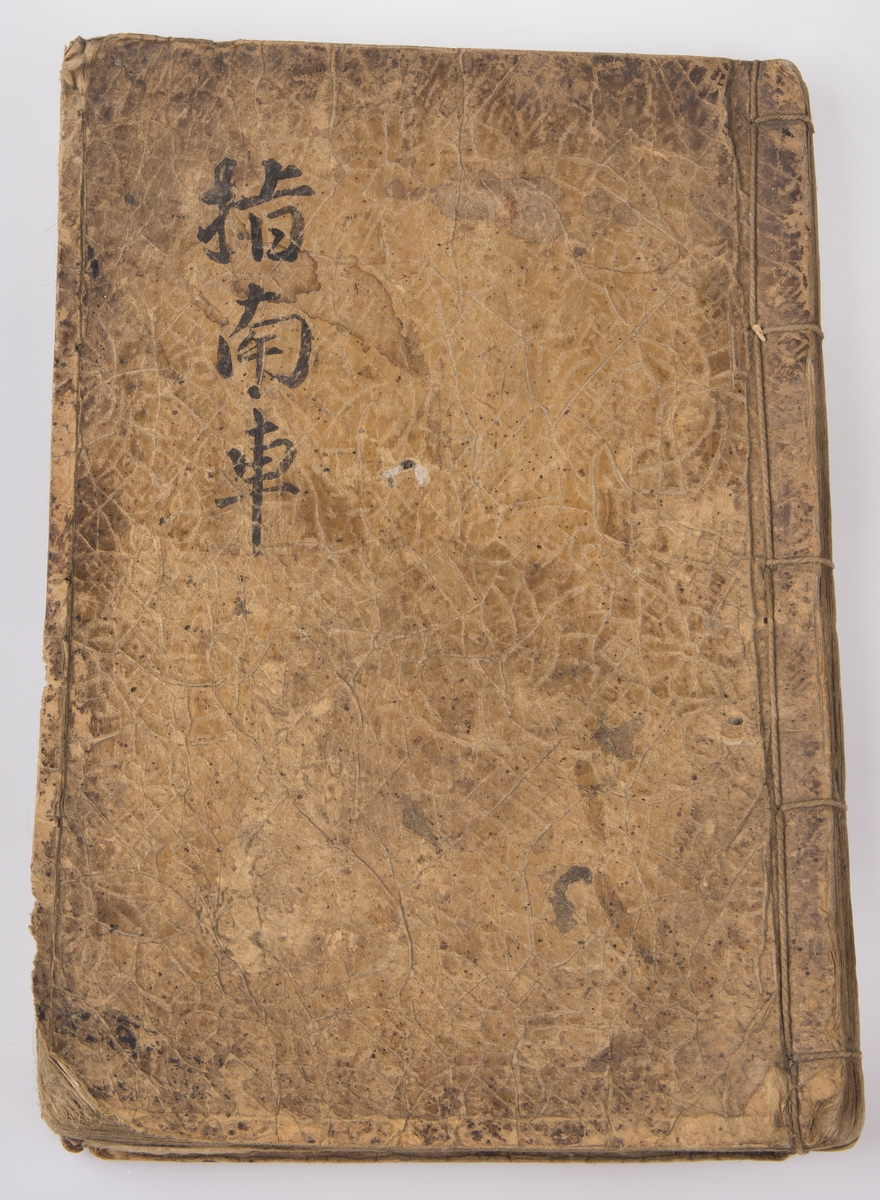 指南車